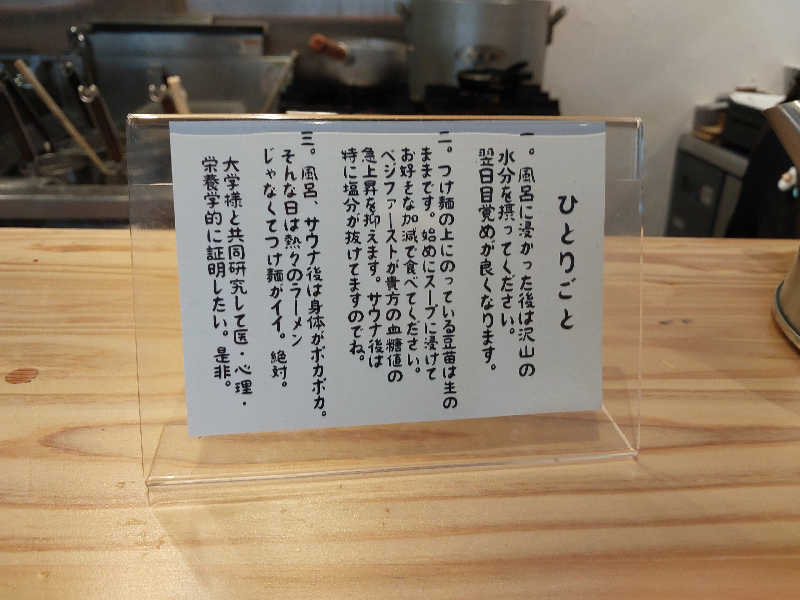 ひとりごと
一。風呂に浸かった後は沢山の
水分を摂ってください。
翌日目覚めが良くなります。
二。つけ麺の上にのっている豆苗は生の
ままです。始めにスープに浸けて
お好きな加減で食べてください。
ベジファーストが貴方の血糖値の
急上昇を抑えます。サウナ後は
特に塩分が抜けてますのでね。
三。風呂、サウナ後は身体がポカポカ。
そんな日は熱々のラーメン
じゃなくてつけ麺がイイ。絶対。
大学様と共同研究して医・心理・
栄養学的に証明したい。是非。